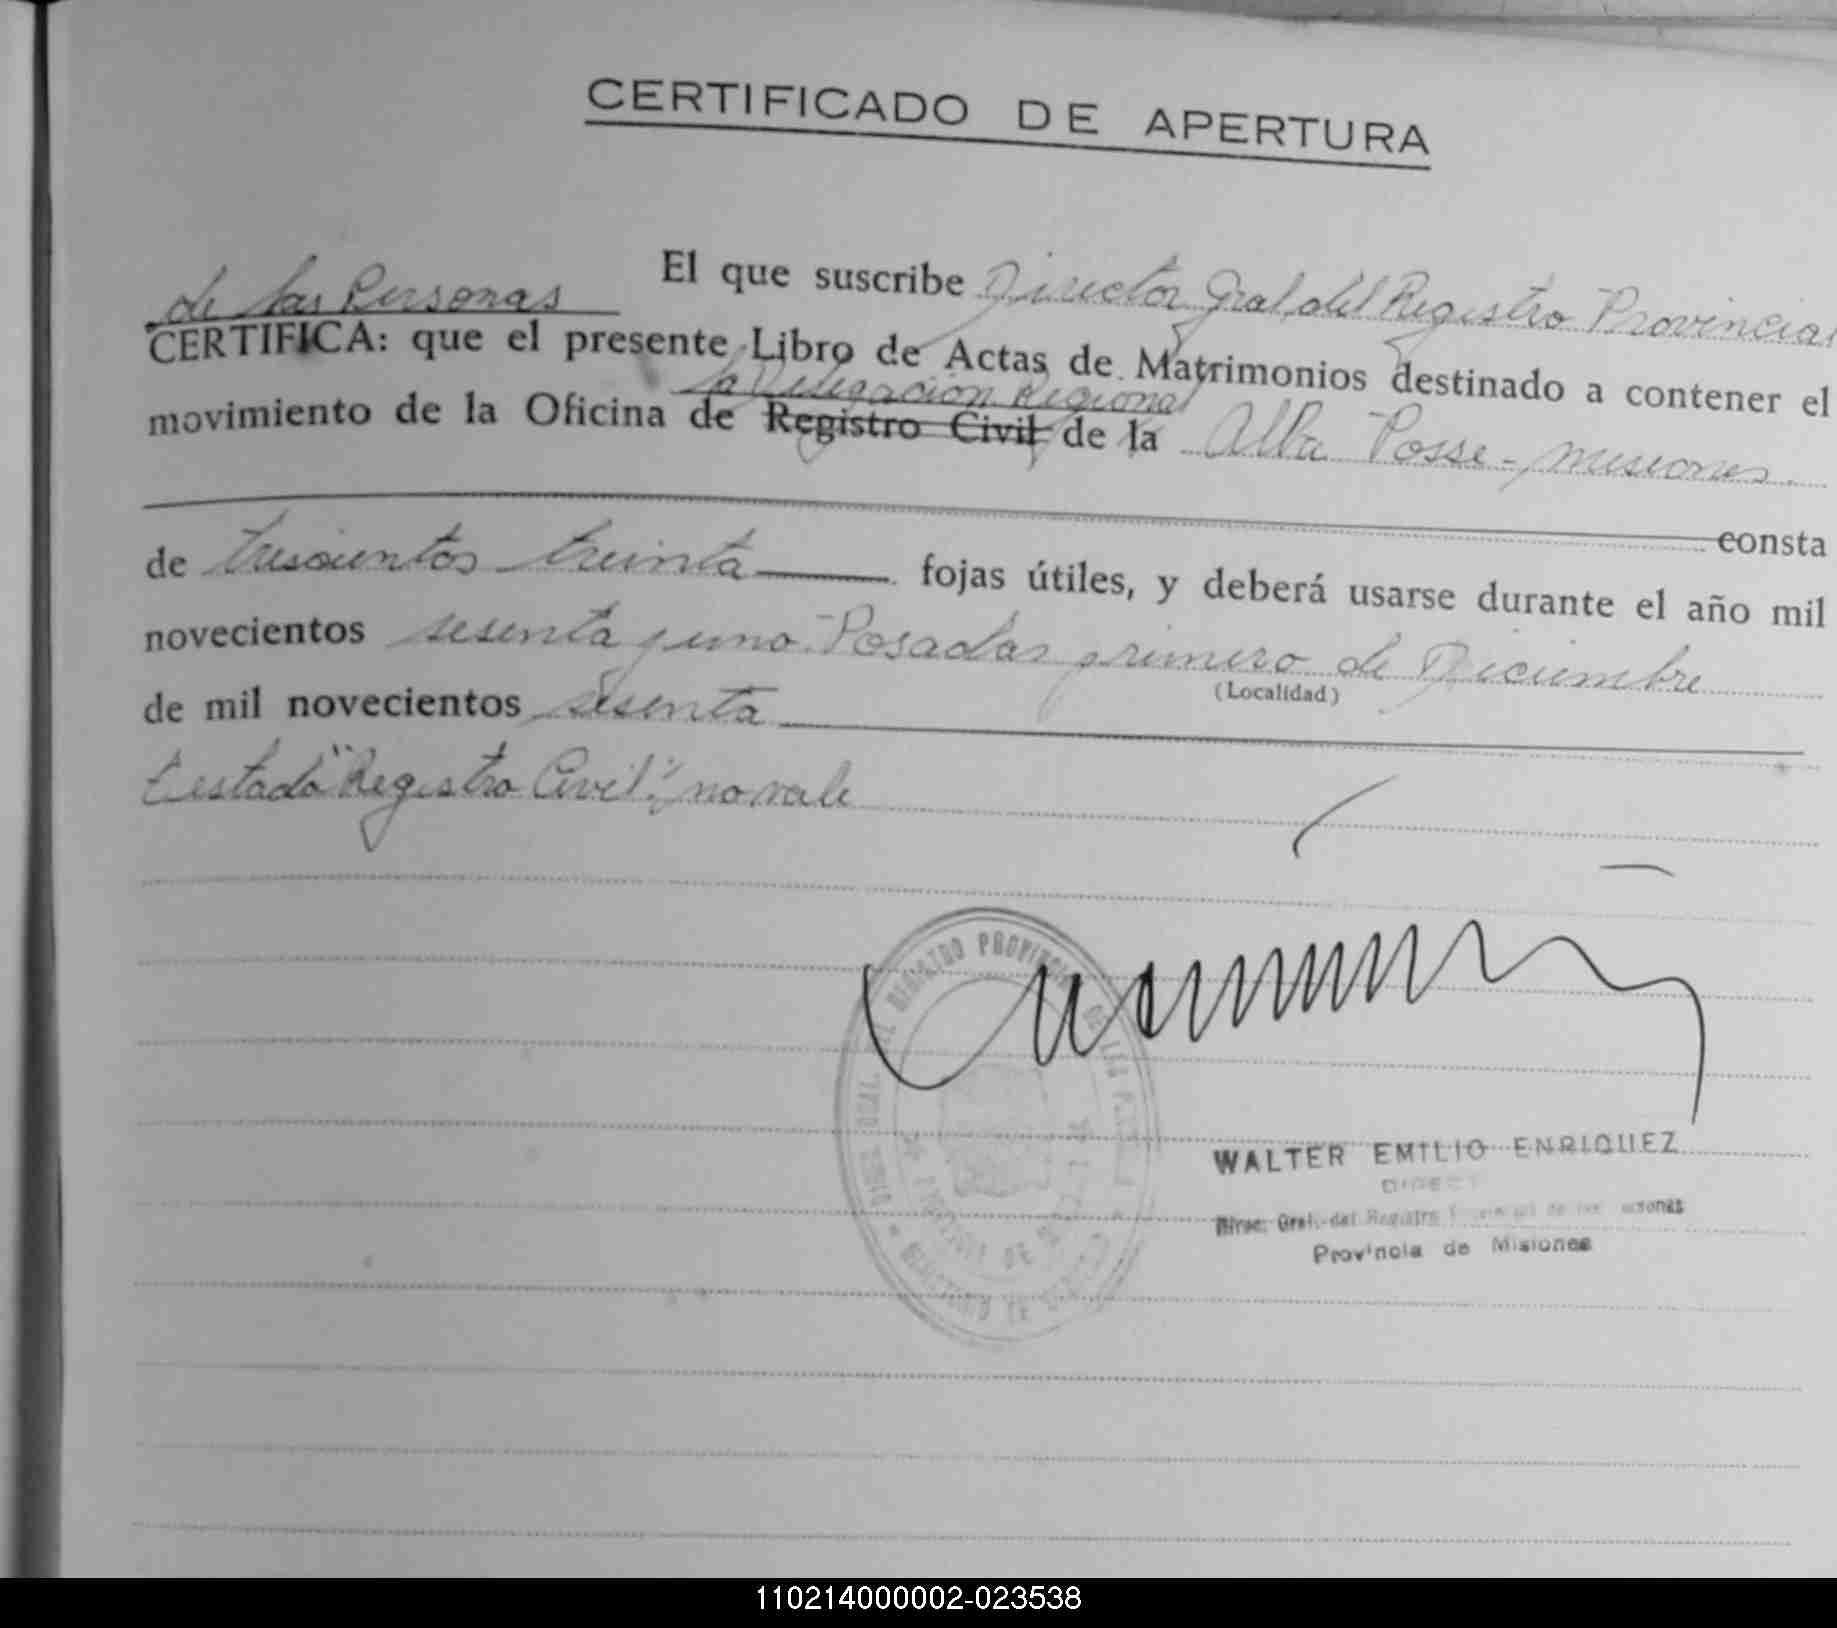 CERTIFICADO DE APERTURA
El que suscribe Director Gral. del Registro Provincial
de las Personas
CERTIFICA: que el presente Libro de Actas de Matrimonios destinado a contener el
la Delegación Regional
movimiento de la Oficina de Registro Civil de la Alba Posse - Misiones
consta
de trescientos treinta fojas útiles, y deberá usarse durante el año mil
novecientos sesenta y uno. Posadas primero de Diciembre
(Localidad)
de mil novecientos sesenta
Testado "Registro Civil", no vale
DEL REGISTRO PROVINCIAL DE LAS
PROVINCIA DE
WALTER EMILIO ENRIQUEZ
DIRECT
Direc. Gral. del Registro Provincial de las Personas
Provincia de Misiones
110214000002-023538